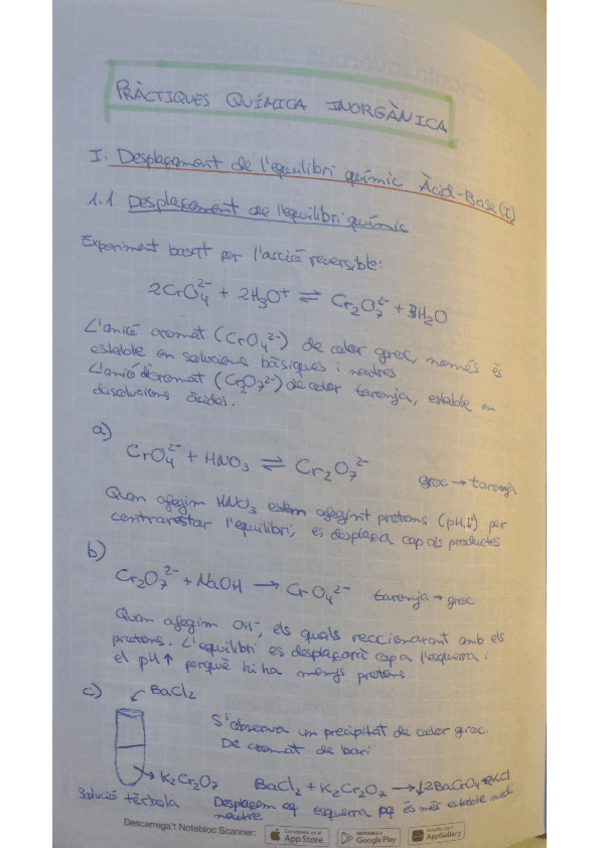 PRÀCTIQUES QUÍMICA INORGÀNICA
I. Desplaçament de l'equilibri químic Àcid-Base (I)
1.1 Desplaçament de l'equilibri químic
Experiment basat per l'acció reversible:
2CrO₄²⁻ + 2H₃O⁺ ⇌ Cr₂O₇²⁻ + 3H₂O
L'anió cromat (CrO₄²⁻) de color groc, només és
estable en solucions bàsiques i neutres
L'anió dicromat (Cr₂O₇²⁻) de color taronja, estable en
dissolucions àcides.
a)
CrO₄²⁻ + HNO₃ ⇌ Cr₂O₇²⁻ groc → taronja
Quan afegim HNO₃ estem afegint protons (pH↓) per
contrarestar l'equilibri, es desplaça cap als productes
b)
Cr₂O₇²⁻ + NaOH → CrO₄²⁻ taronja → groc
Quan afegim OH⁻, els quals reccionarant amb els
protons. L'equilibri es desplaçarà cap a l'esquerra i
el pH↑ perquè hi ha menys protons
c) BaCl₂
S'observa un precipitat de color groc.
De cromat de bari
K₂Cr₂O₇ BaCl₂ + K₂Cr₂O₇ → ↓2BaCrO₄ KCl
Solució tèrbola Desplaçem esquerra pq és més estable medi
neutre
Descarrega't Notebloc Scanner:
Consíguelo en el
App Store
DISPONIBLE A
Google Play
AppGallery